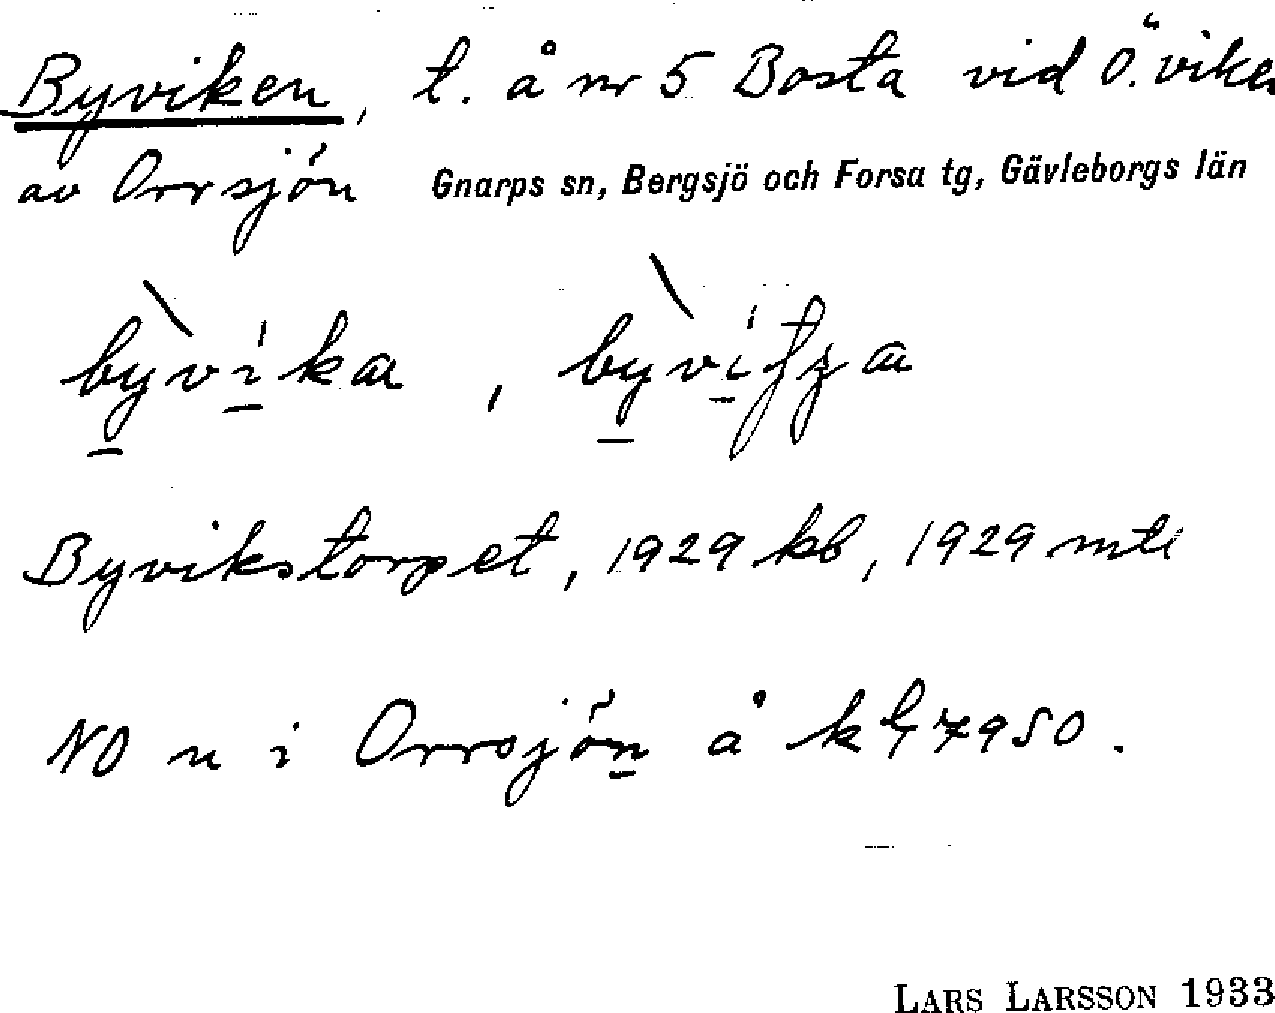 Byviken, t. å nr 5 Bosta vid Ö. viken
av Orrsjön Gnarps sn, Bergsjö och Forsa tg, Gävleborgs län
Byvikstorpet, 1929 kb, 1929 mtl
NO n i Orrsjön å kbl 7950.
LARS LARSSON 1933